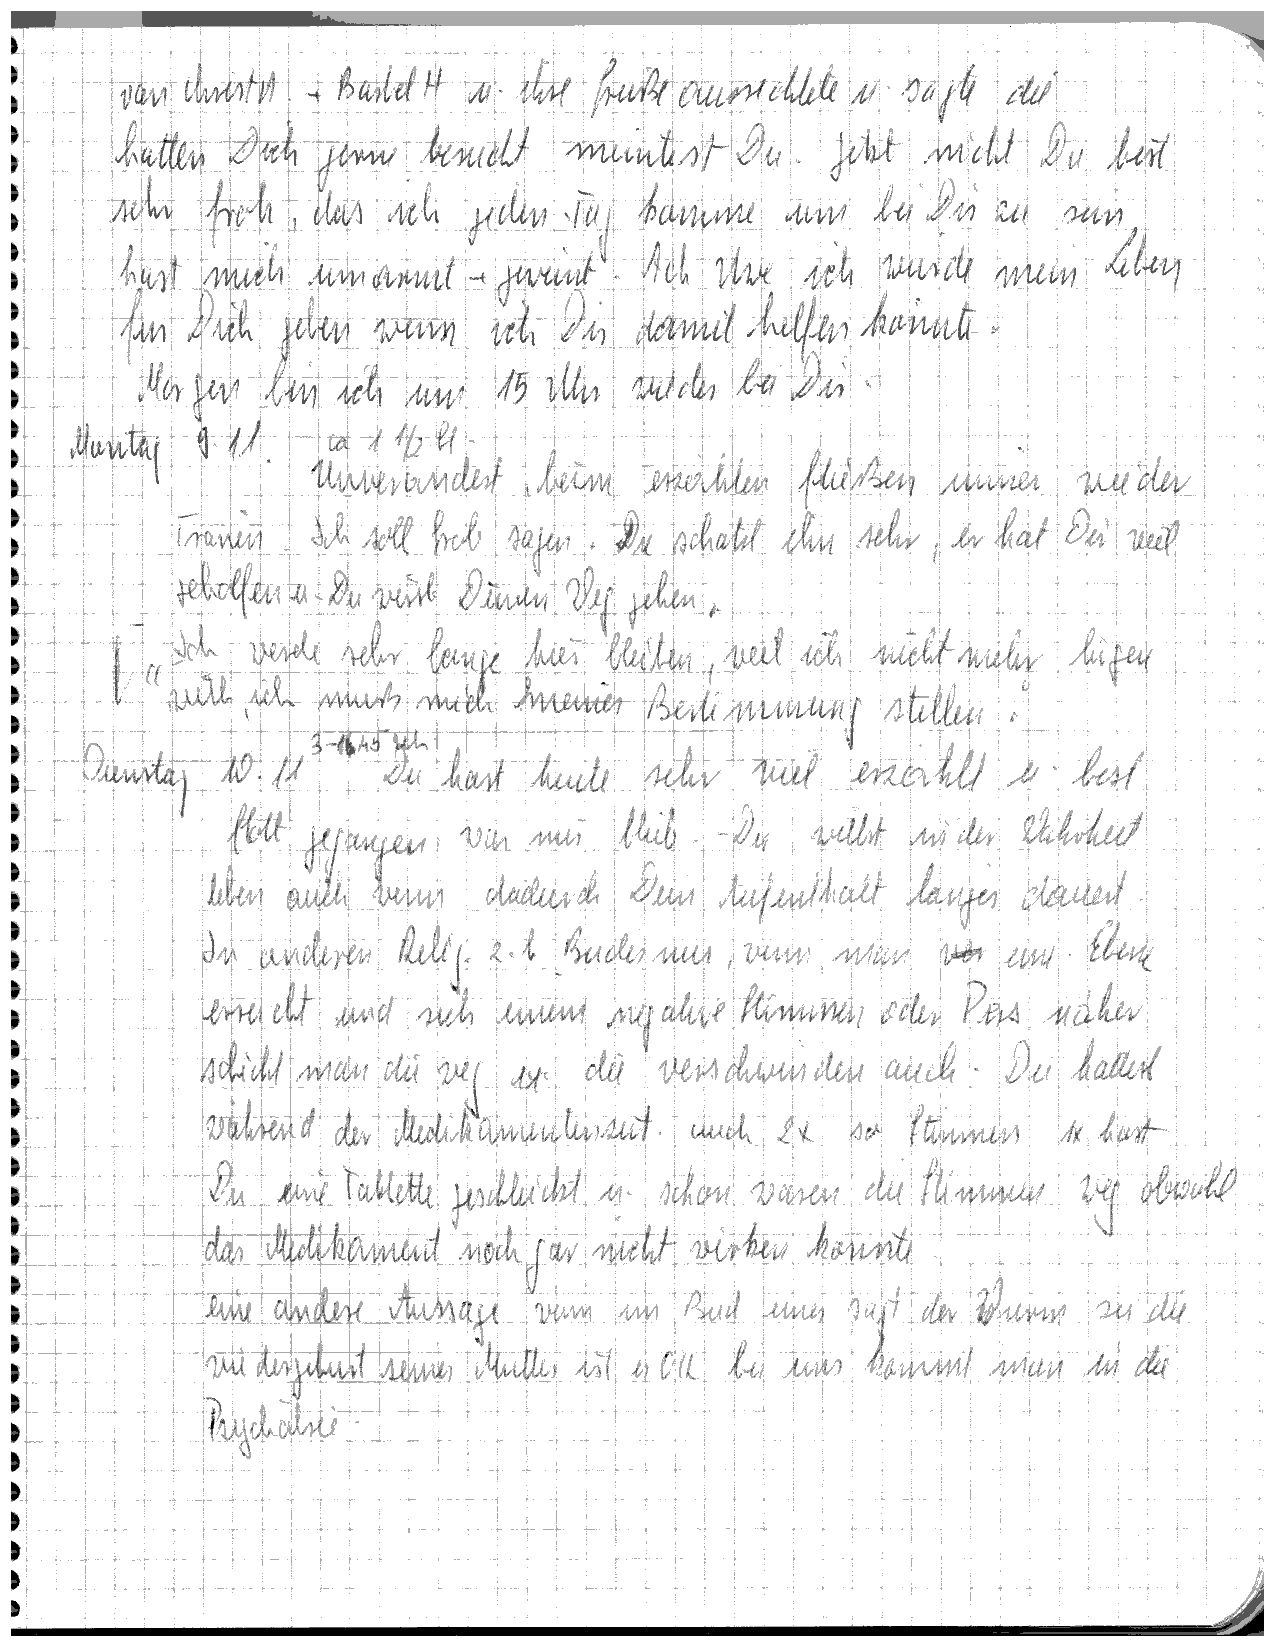 von Christ H. + Bärbel H u. ihre Grüße ausrichtete u. sagte die
hätten Dich gerne besucht meintest Du. jetzt nicht Du bist
sehr froh, das ich jeden Tag komme um bei Dir zu sein
hast mich umarmt + geweint. Ach Uwe ich würde mein Leben
für Dich geben wenn ich Dir damit helfen könnte.
Morgen bin ich um 15 Uhr wieder bei Dir.
Montag 9.11. ca 1 1/2 St.
Unverändert, beim erzählen fließen immer wieder
Tränen Ich soll sagen. Du schätzt ihn sehr, er hat Dir viel
geholfen u. Du wirst Deinen Weg gehen.
"Ich werde sehr lange hier bleiben, weil ich nicht mehr lügen
will, ich muß mich meiner Bestimmung stellen.
3-16.45
Dienstag 10.11 Du hast heute sehr viel erzählt u. bist
flott gegangen, was mir blieb. Du willst in der Wahrheit
leben auch wenn dadurch Dein Aufenthalt länger dauert.
In anderen Relig. z.b Budismus, wenn man eine Ebene
erreicht und sich einem negative Stimmen oder Pers näher
schickt man die weg u. die verschwinden auch. Du hattest
während der Medikamentenzeit. auch 2x so Stimmen 1x hast
Du eine Tablette geschluckt u. schon waren die Stimmen weg obwohl
das Medikament noch gar nicht wirken konnte
eine andere Aussage wenn im Bud einer sagt der Wurm sei die
wiedergeburt seiner Mutter ist er OK bei uns kommt man in die
Psychatrie.